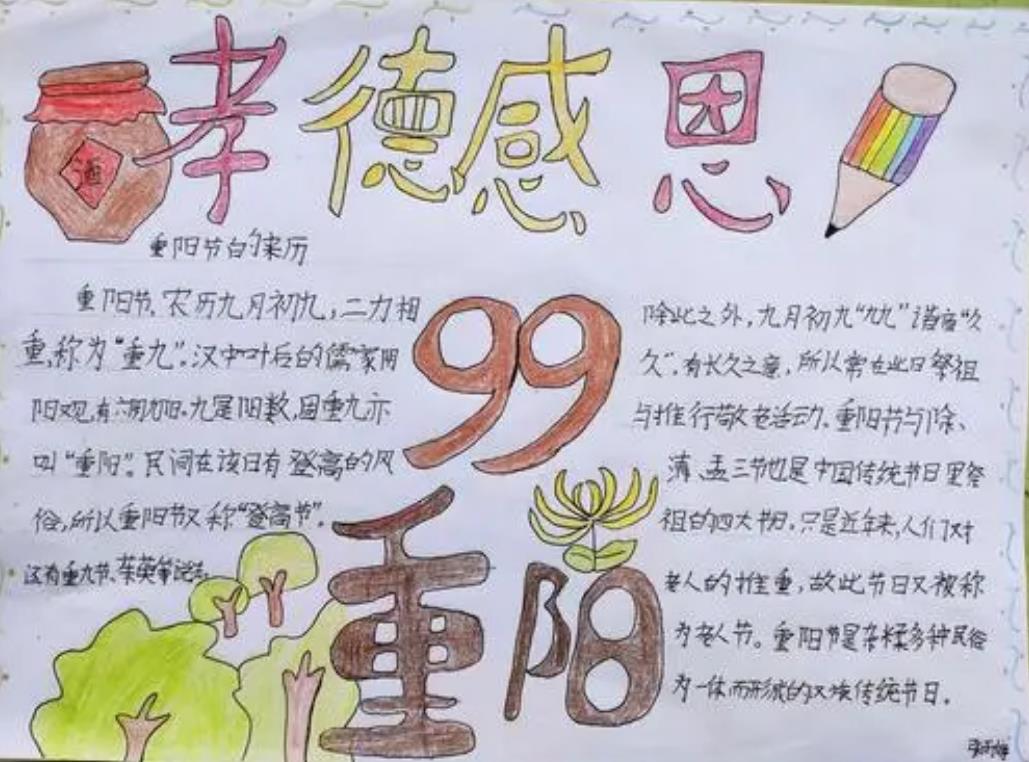 孝德感恩
酒
重阳节的来历
重阳节,农历九月初九,二九相
重,称为“重九”。汉中叶后的儒家阴
阳观,有六阴九阳.九是阳数,固重九亦
叫“重阳”。民间在该日有登高的风
俗,所以重阳节又称“登高节”。
还有重九节、茱萸等说法。
99
重阳
除此之外,九月初九“九九”谐音“久
久”.有长久之意,所以常在此日祭祖
与推行敬老活动.重阳节与除、
清、盂三节也是中国传统节日里祭
祖的四大节日.只是近年来,人们对
老人的推重,故此节日又被称
为老人节。重阳节是杂糅多种民俗
为一体而形成的汉族传统节日.